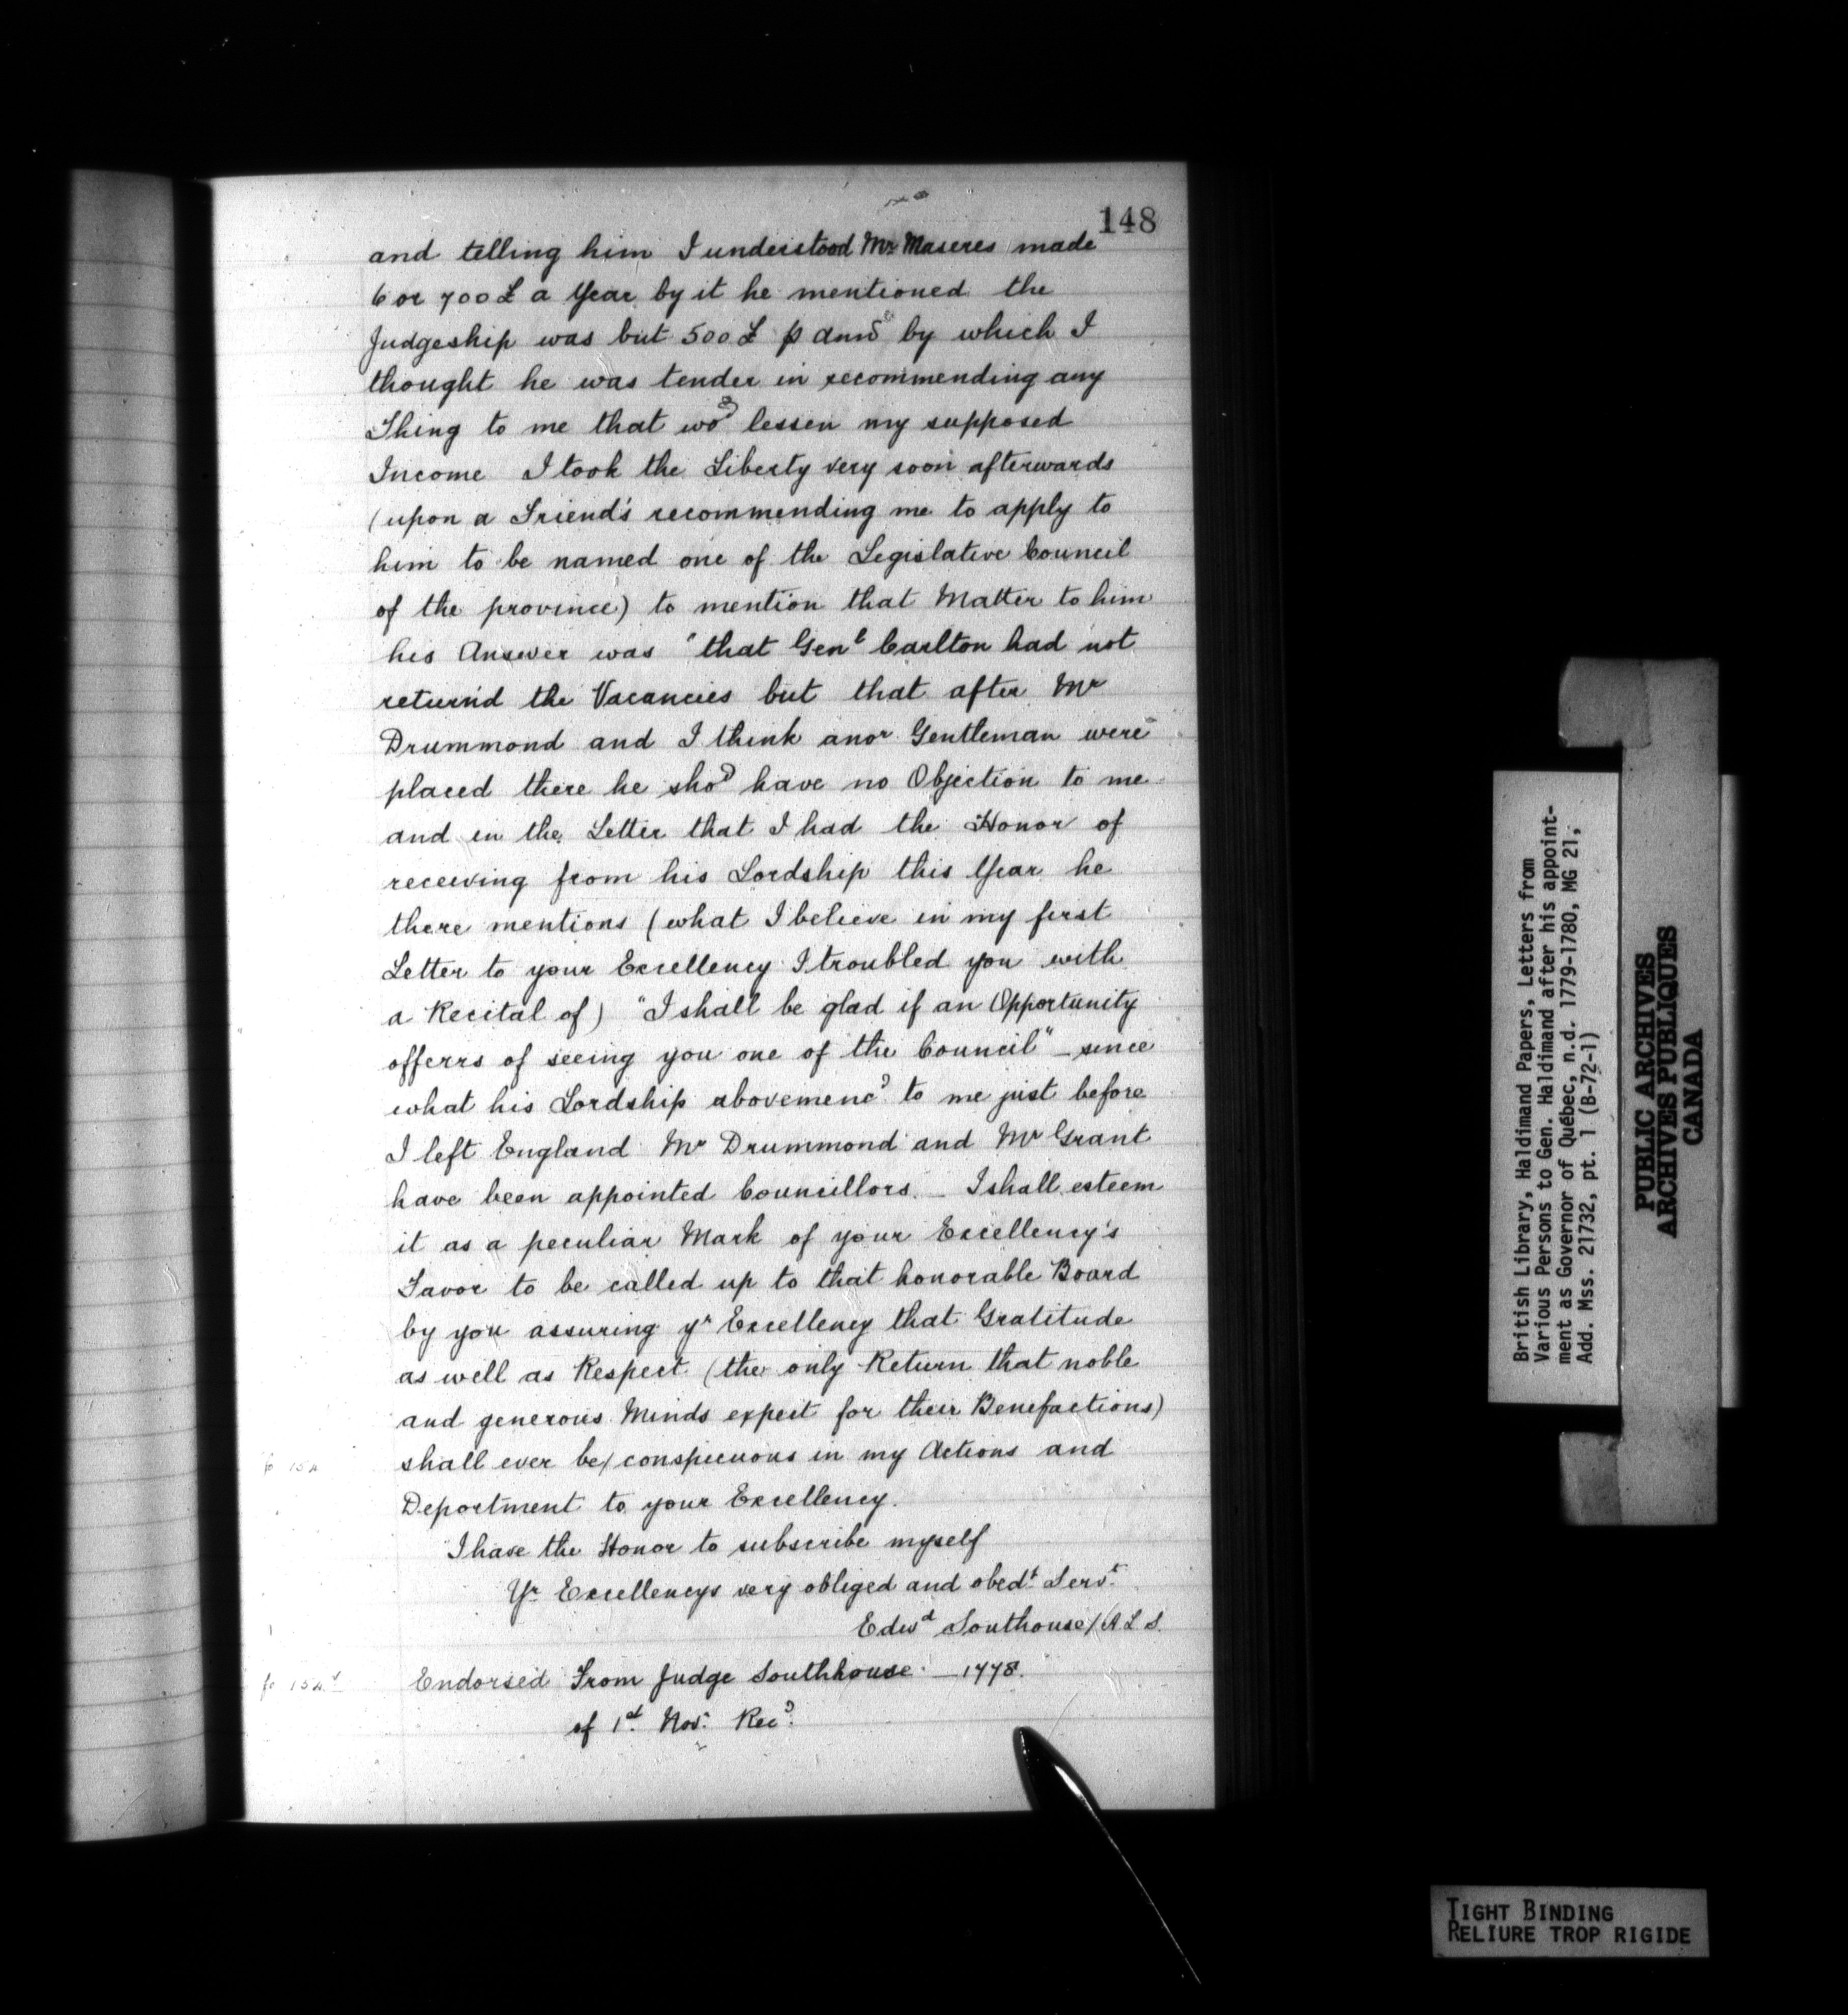 148
and telling him I understood Mr Maseres made
6 or 700£ a Year by it he mentioned the
Judgeship was but 500£ p ann by which I
thought he was tender in recommending any
Thing to me that wod lessen my supposed
Income I took the Liberty very soon afterwards
(upon a Friend's recommending me to apply to
him to be named one of the Legislative Council
of the province) to mention that Matter to him
his Answer was "that Genl Carlton had not
return'd the Vacancies but that after Mr
Drummond and I think anor Gentleman were
placed there he shod have no Objection to me
and in the Letter that I had the Honor of
receiving from his Lordship this Year he
there mentions (what I believe in my first
Letter to your Excellency I troubled you with
a Recital of) "I shall be glad if an Opportunity
offerrs of seeing you one of the Council" – since
what his Lordship abovemencd to me just before
I left England Mr Drummond and Mr Grant
have been appointed Councillors. – I shall esteem
it as a peculiar Mark of your Excellency's
Favor to be called up to that honorable Board
by you assuring yr Excellency that Gratitude
as well as Respect (the only Return that noble
and generous Minds expect for their Benefactions)
fo 154 shall ever be/conspicuous in my Actions and
Deportment to your Excellency.
I have the Honor to subscribe myself
Yr Excellencys very obliged and obedt Servt
Edwd Southouse/A L S.
fo 154v Endorsed From Judge Southhouse – 1778.
of 1st Nov. Recd.
British Library, Haldimand Papers, Letters from
Various Persons to Gen. Haldimand after his appoint-
ment as Governor of Québec, n.d. 1779-1780, MG 21,
Add. Mss. 21732, pt. 1 (B-72-1)
PUBLIC ARCHIVES
ARCHIVES PUBLIQUES
CANADA
TIGHT BINDING
RELIURE TROP RIGIDE